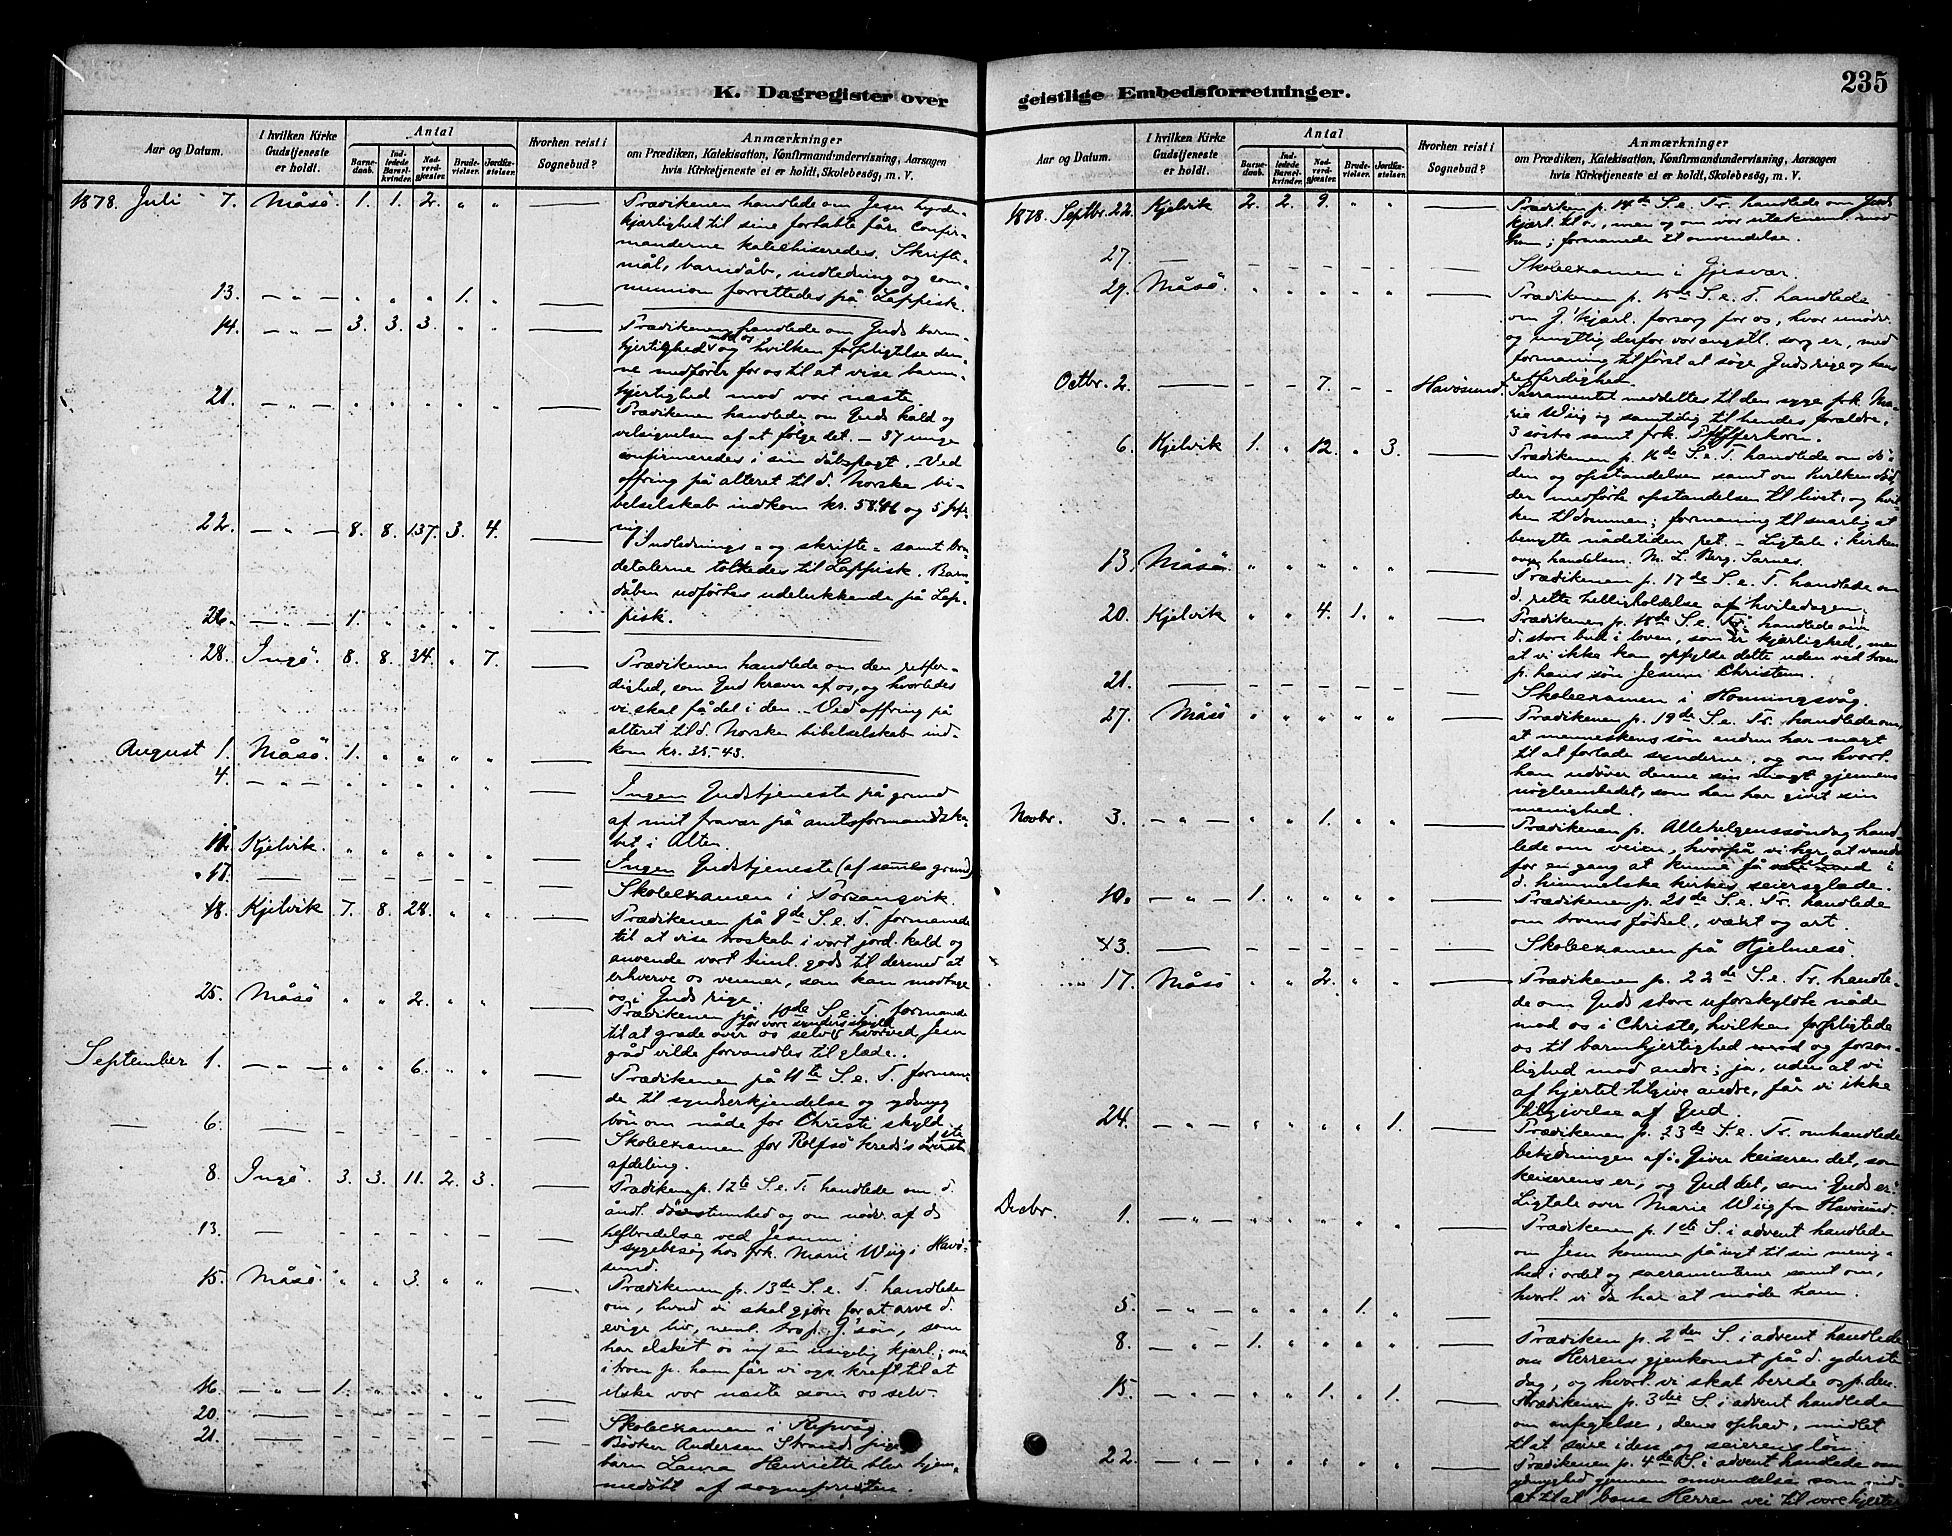 K. Dagregister over
Aar og Datum.
I hvilken Kirke Gudstjeneste er holdt.
Antal
Barnedaab.
Indledede Barselkvinder.
Nadverdgjæster.
Brudevielser.
Jordfæstelser.
Hvorhen reist i Sognebud?
Anmærkninger
om Prædiken, Katekisation, Konfirmandundervisning, Aarsagen
hvis Kirketjeneste ei er holdt, Skolebesøg, m. V.
1878. Juli 7. Måsö 1. 1. 2. " " —
Prædikenen handlede om Jesu
kjærlighed til sine fortabte får. Confir-
manderne katechiseredes. Skrifte-
mål, barnedåb, indledning og com-
munion forrettedes på Lappisk.
13. — " — " " " 1. " —
14. — " — 3. 3. 3. " " —
Prædikenen handlede om Guds barm-
hjertighed mod os og hvilken forpligtelse den-
ne medförer for os til at vise barm-
hjertighed mod vor næste.
21. — " — " " " " " —
Prædikenen handlede om Guds kald og
velsignelsen af at følge det. – 37 unge
confirmeredes i sin dåbspagt. – Ved
offring på alteret til d. Norske bi-
belselskab indkom kr. 58.46 og 5
22. — " — 8. 8. 137. 3. 4. —
Indlednings- og skrifte- samt bru-
detalerne tolkedes til Lappisk. Barn-
dåben udförtes udelukkende på Lap-
pisk.
26. — " — 1. " " " "
28. Ingö. 8. 8. 34. " 7. —
Prædikenen handlede om den retfær-
dighed, som Gud kræver af os, og hvorledes
vi skal få del i den. – Ved offring på
alteret til d. Norske bibelselskab ind-
kom kr. 35-43.
August 1. Måsö 1. " " " " —
4. — " — " " " " " —
Ingen Gudstjeneste på grund
af mit fravær på amtsformandska-
bet i Alten.
11. Kjelvik. " " " " " —
Ingen Gudstjeneste (af samme grund)
17. — – – – – – —
Skoleexamen i Porsangvik.
18. Kjelvik 7. 8. 28. " " —
Prædikenen på 9de S. e. T. formanede
til at vise troskab i vort jord. kald og
anvende vort timl. gods til dermed at
erhverve os venner, som kan modtage
os i Guds rige.
25. Måsö " " 2. " " —
Prædikenen på 10de S. e. T. formanede
til at græde over os selv for vore synders skyld hvorved Jesu
gråd vilde forvandles til glæde.
September 1. — " — " " 6. " " —
Prædikenen på 11te S. e. T. forman-
de til synderkjendelse og ydmyg
bön om nåde for Christi skyld
6. — – – – – – —
Skoleexamen for Rolfsö kreds's
afdeling.
8. Ingö. 3. 3. 11. 2. 3. —
Prædiken p. 12te S. e. T. handlede om d.
åndl. dövstumhed og om nödv. af ds
helbredelse ved Jesum.
13. — – – – – – —
I sygebesög hos frk. Marie Wiig i Havö-
sund.
15. Måsö. " " 3. " " —
Prædikenen p. 13de S. e. T. handlede
om, hvad vi skal gjöre for at arve d.
evige liv, neml. tro p. G's sön, som
har elsket os m/ en usigelig kjærl.; men
i troen p. ham får vi ogs. kraft til at
elske vor næste som os selv.
16. — " — 1. " " " " —
20. — – – – – – —
Skoleexamen i Repvåg
21. — – – – – – —
Bödker Andersen Strands pige-
barn Laura Henriette blev hjem-
medöbt af sognepresten.
geistlige Embedsforretninger.
235
Aar og Datum.
I hvilken Kirke Gudstjeneste er holdt.
Antal
Barnedaab.
Indledede Barselkvinder.
Nadverdgjæster.
Brudevielser.
Jordfæstelser.
Hvorhen reist i Sognebud?
Anmærkninger
om Prædiken, Katekisation, Konfirmandundervisning, Aarsagen
hvis Kirketjeneste ei er holdt, Skolebesøg, m. V.
1878. Septbr. 22. Kjelvik 2. 2. 9. " " —
Prædiken p. 14de S. e. Tr. handlede om Guds
kjærl. til os, men og om vor utaknem. mod
ham; formanede til omvendelse.
27. — – – – – – —
Skoleexamen i Gjesvær.
29. Måsö. " " " " " —
Prædikenen p. 15de S. e. T. handlede
om G.' kjærl. forsorg for os, hvor unödv.
og unyttig derfor vor ængstl. sorg er, med
formaning til först at söge Guds rige og hans
retfærdighed.
Octbr. 2. — – – 7. – – Havösund.
Sacramentet meddeltes til den syge frk. Ma-
rie Wiig og samtidig til hendes forældre,
3 söstre samt frk. Pfefferkorn.
6. Kjelvik 1. " 12. " 3. —
Prædikenen p. 16de S. e. T. handlede om dö-
den og opstandelsen samt om hvilken död,
der medförte opstandelsen til livet, og hvil-
ken til dommen; formaning til snarlig at
benytte nådetiden ret. – Ligtale i kirken
over handelsm. M. L. Berg. Sarnes.
13. Måsö " " " " " —
Prædikenen p. 17de S. e. T. handlede om
d. rette helligholdelse af hviledagen.
20. Kjelvik " " 4. 1. " —
Prædikenen p. 18de S. e. Tr. handlede om
d. store bud i loven, som er kjærlighed, men
at vi ikke kan opfylde dette uden ved troen
p. hans sön Jesum Christum.
21. — – – – – – —
Skoleexamen i Honningsvåg.
27. Måsö " " " " " —
Prædikenen p. 19de S. e. Tr. handlede om,
at menneskens sön endnu har magt
til at forlade synderne, og om hvorl.
han udöver denne sin magt gjennem
nögleembedet, som han har givet sin
menighed.
Novbr. 3. — " — " " 1. " " —
Prædikenen p. Allehelgenssöndag hand-
lede om veien, hvorpå vi har at vandre
for en gang at kunne få del i
d. himmelske kirkes seiersglæde.
10. — " — 1. " " " " —
Prædikenen p. 21de S. e. Tr. handlede
om troens födsel, vært og art.
13. — – – – – – —
Skoleexamen på Hjelmesö
17. Måsö " " 2. " " —
Prædikenen p. 22de S. e. Tr. handle-
de om Guds store uforskyldte nåde
mod os i Christo, hvilken forpligtede
os til barmhjertighed mod og forson-
lighed mod andre; ja, uden at vi
af hjertet tilgive andre, får vi ikke
tilgivelse af Gud.
24. — " — " " " " 1. —
Prædikenen p. 23de S. e. Tr. omhandlede
betydningen af: Giver keiseren det, som
keiserens er, og Gud det, som Guds er.
Ligtale over Marie Wiig fra Havösund.
Decbr. 1. — " — " " " " " —
Prædikenen p. 1ste S. i advent handlede
om Jesu komme på nyt til sin menig-
hed i ordet og sacramenterne samt om,
hvorl. vi da har at möde ham.
5. — " — " " " 1. " —
8. — " — 1. " " " " —
Prædiken p. 2den S. i advent handlede
om Herrens gjenkomst på d. yderste
dag, og hvorl. vi skal berede os p. den.
15. — " — " " 1. " 1. —
Prædikenen p. 3die S. i advent handlede
om anfægtelse, dens ophav, midlet
til at seire i den og seierens lön.
22. — " — " " " " " —
Prædikenen p. 4de S. i advent handlede om
ydmyghed gjennem omvendelse som mid-
let til at bane Herren vei til vore hjerter